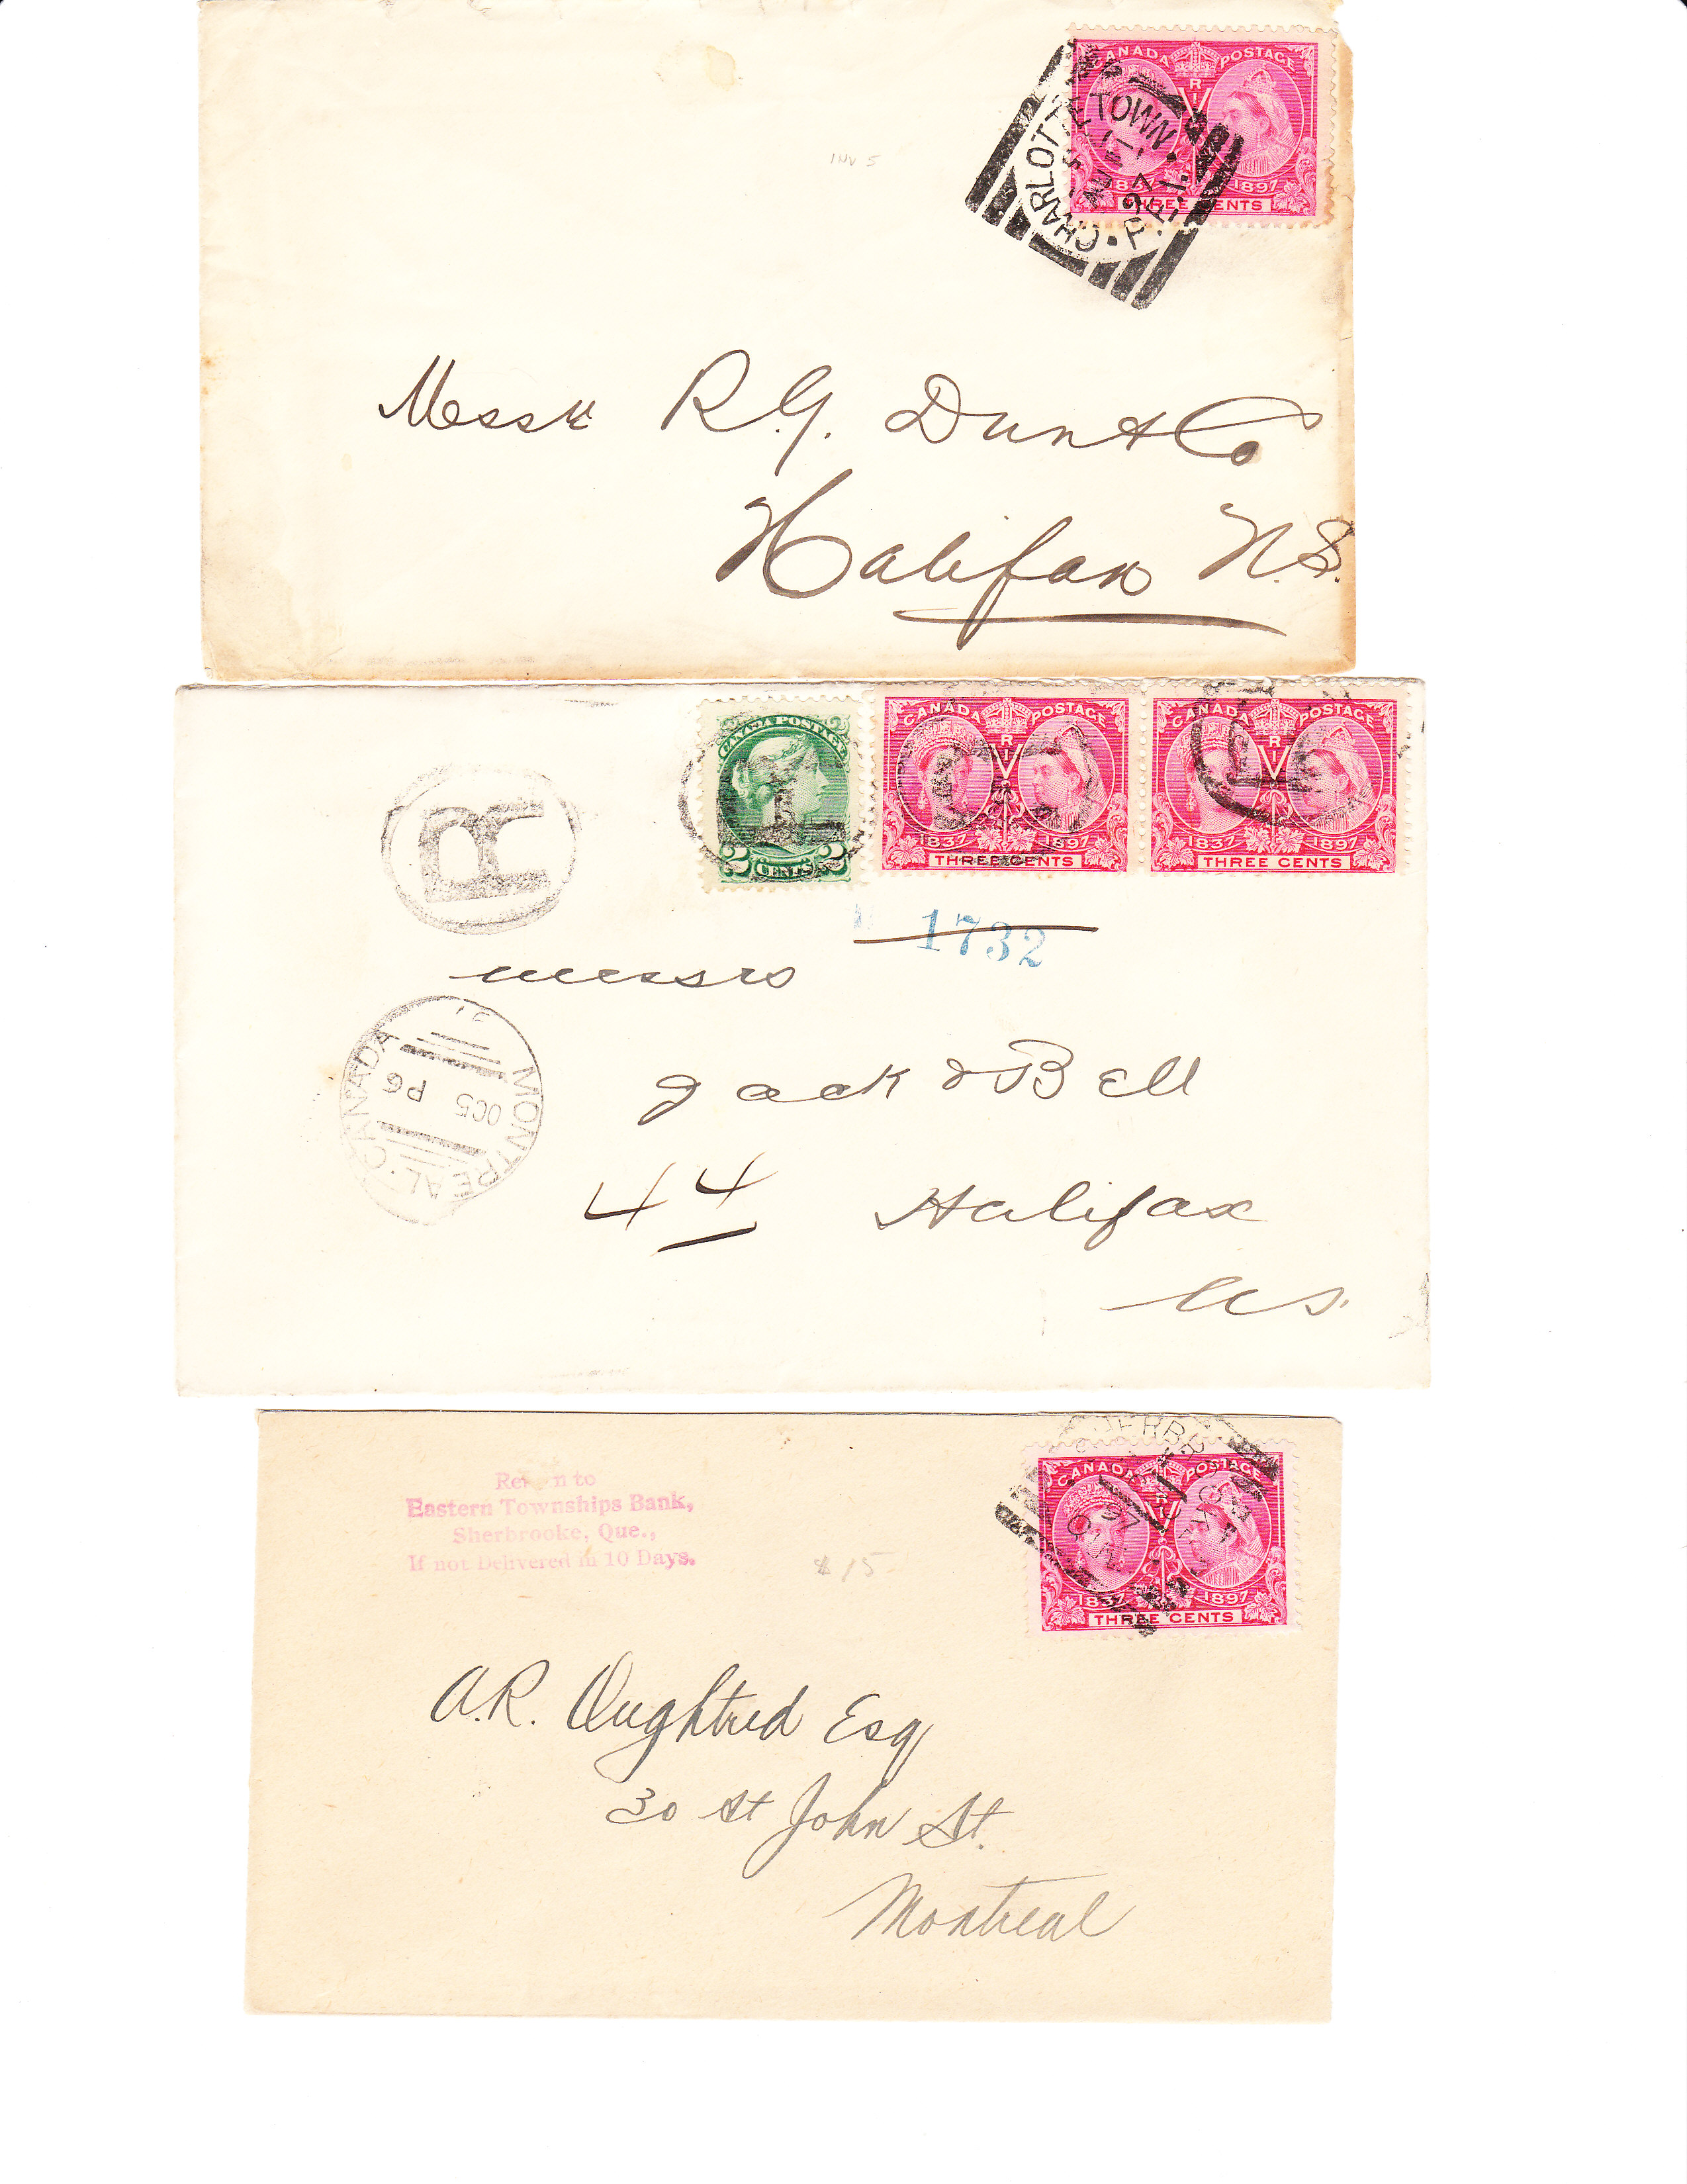 CANADA POSTAGE
V R I
1837 1897
THREE CENTS
CHARLOTTETOWN
AU 11
97
P.E.I.
INV 5
Messrs R.G. Dun & Co
Halifax N.S.
CANADA POSTAGE
2 CENTS 2
CANADA POSTAGE
V R I
1837 1897
THREE CENTS
CANADA POSTAGE
V R I
1837 1897
THREE CENTS
R
R
1732
messrs
MONTREAL · CANADA
OC 5 P6
Jack & Bell
44 Halifax
NS.
CANADA POSTAGE
V R I
1837 1897
THREE CENTS
97
QUE
Return to
Eastern Townships Bank,
Sherbrooke, Que.,
If not Delivered in 10 Days.
$15
A.R. Oughtred Esq
30 St John St.
Montreal